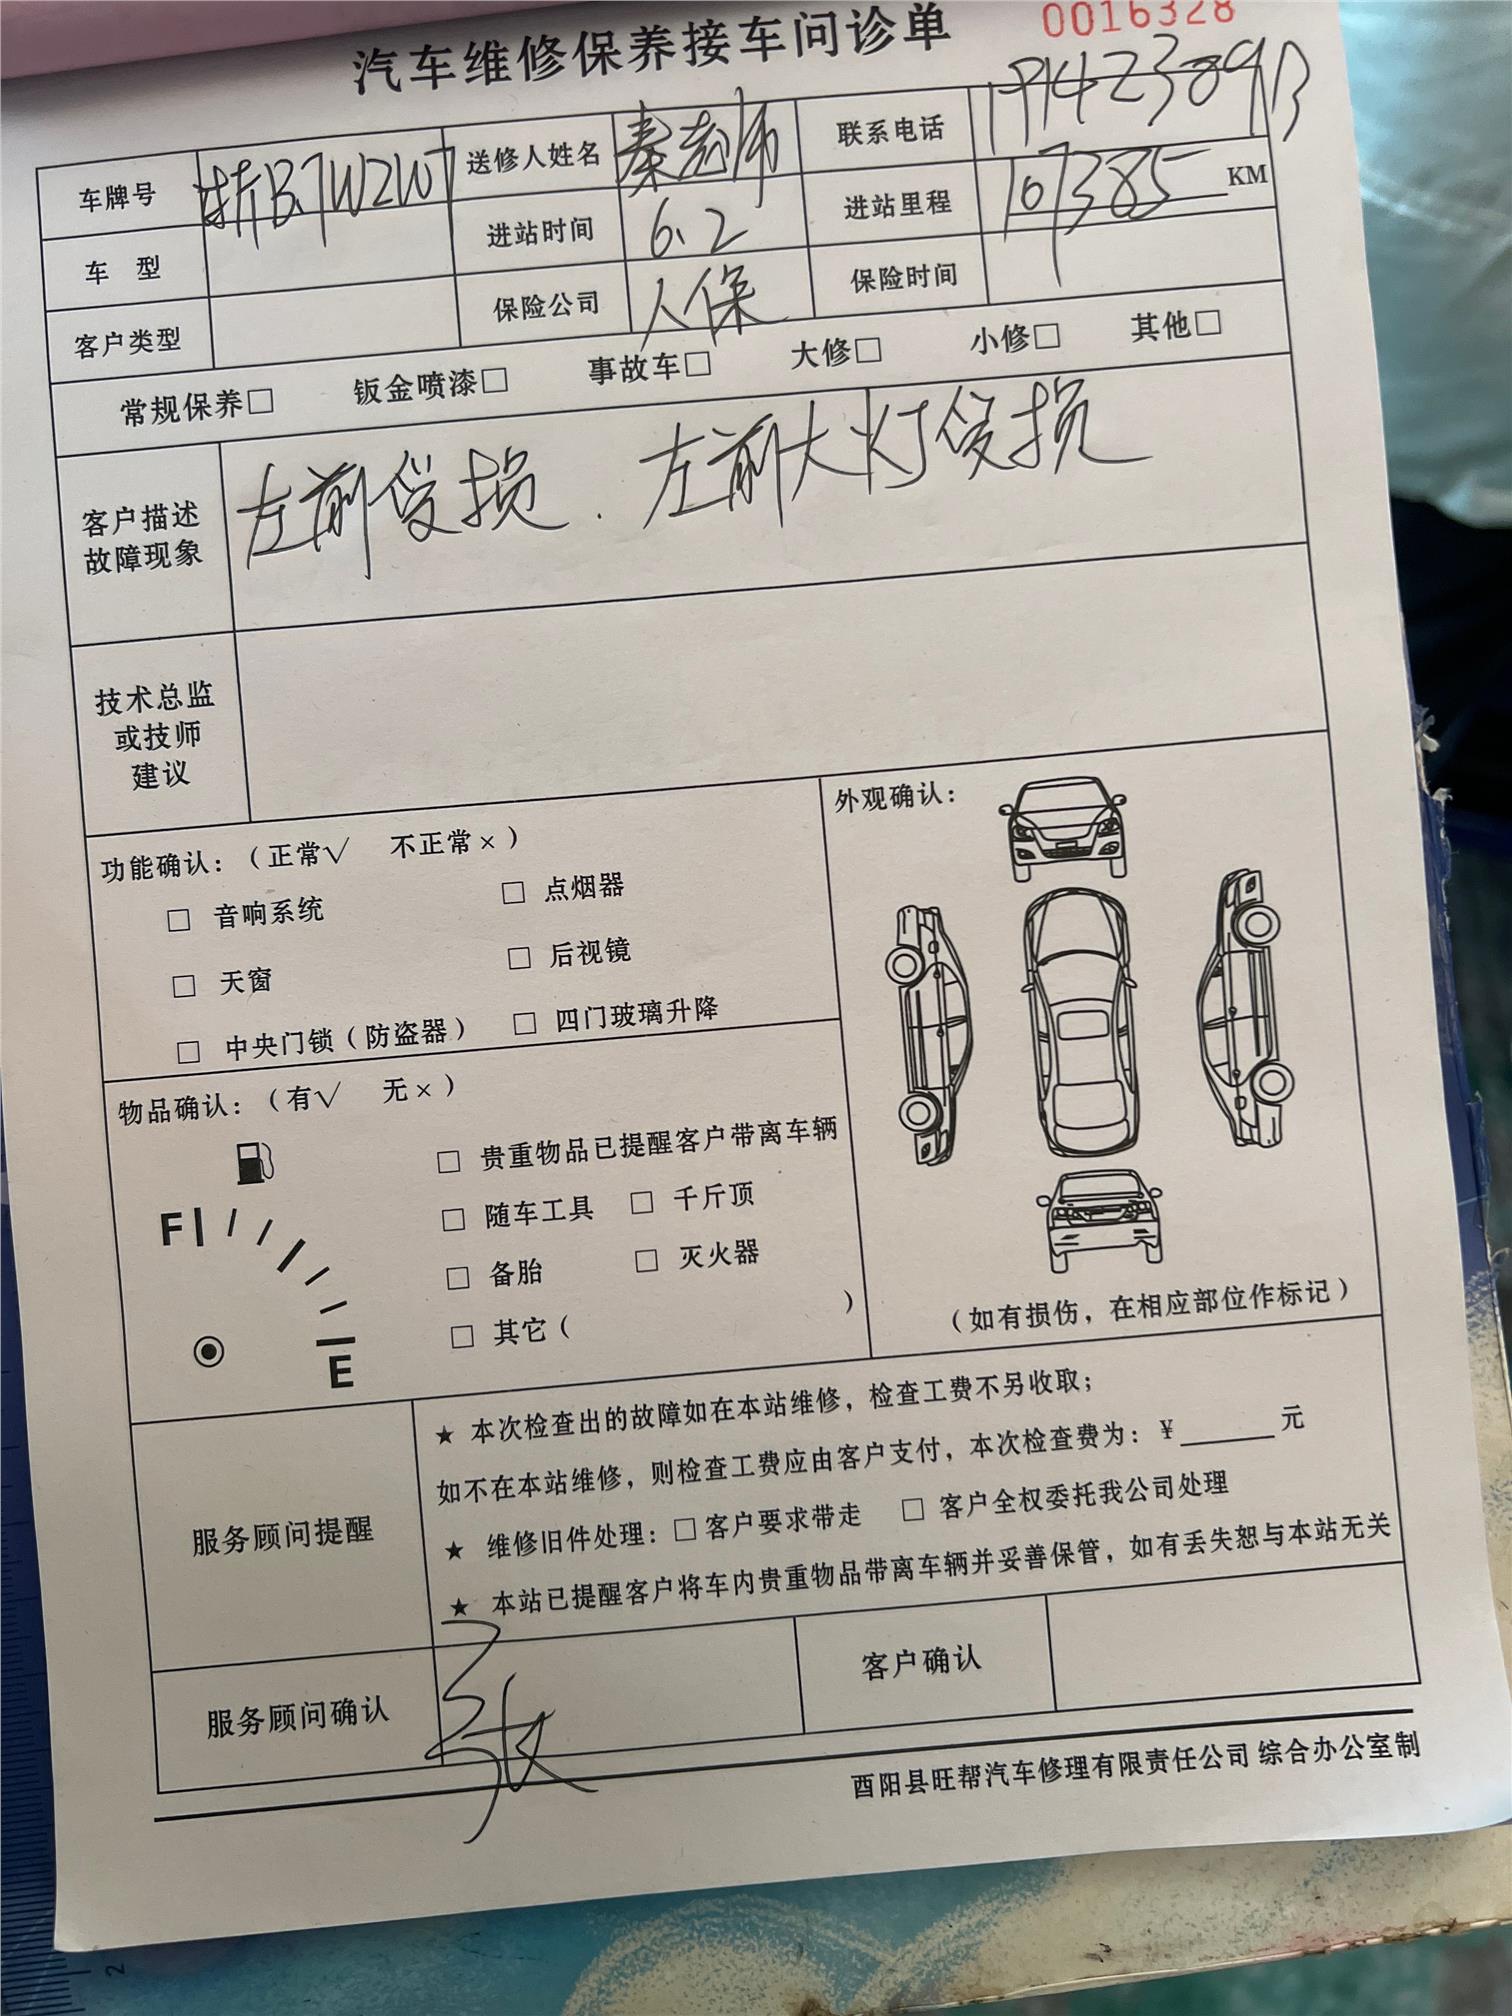 汽车维修保养接车问诊单 0016328
车牌号 B.7W2W7 送修人姓名 秦 联系电话
车 型 进站时间 6.2 进站里程 107385 KM
客户类型 保险公司 人保 保险时间
常规保养□ 钣金喷漆□ 事故车□ 大修□ 小修□ 其他□
客户描述
故障现象
左前受损. 左前大灯受损
技术总监
或技师
建议
功能确认：（正常√ 不正常×）
□ 音响系统 □ 点烟器
□ 天窗 □ 后视镜
□ 中央门锁（防盗器） □ 四门玻璃升降
外观确认：
（如有损伤，在相应部位作标记）
物品确认：（有√ 无×）
F
E
□ 贵重物品已提醒客户带离车辆
□ 随车工具 □ 千斤顶
□ 备胎 □ 灭火器
□ 其它（ ）
服务顾问提醒
★ 本次检查出的故障如在本站维修，检查工费不另收取；
如不在本站维修，则检查工费应由客户支付，本次检查费为：￥______元
★ 维修旧件处理：□客户要求带走 □ 客户全权委托我公司处理
★ 本站已提醒客户将车内贵重物品带离车辆并妥善保管，如有丢失恕与本站无关
服务顾问确认 客户确认
酉阳县旺帮汽车修理有限责任公司 综合办公室制
2